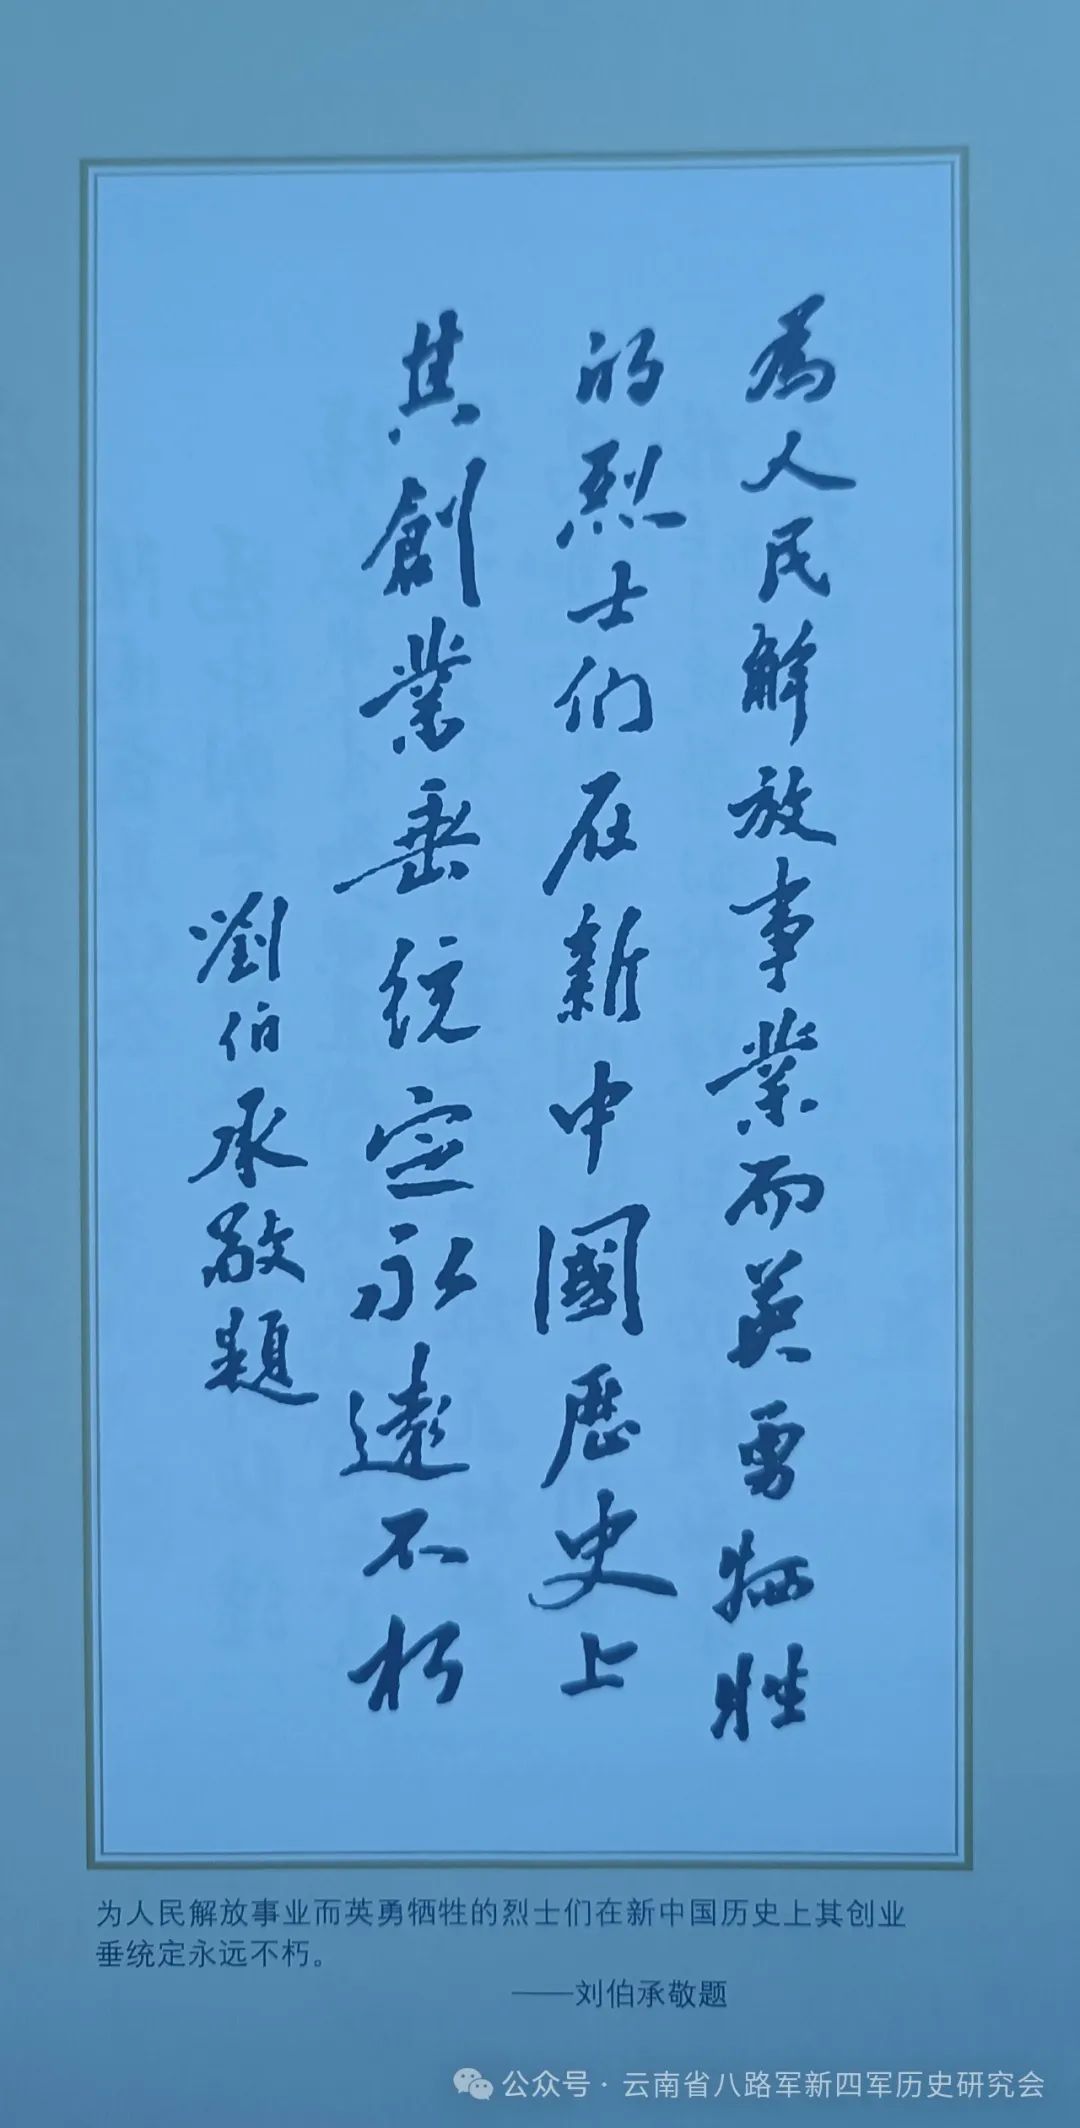 為人民解放事業而英勇牺牲
的烈士们在新中國歷史上
其創業垂统定永遠不朽
劉伯承敬題
为人民解放事业而英勇牺牲的烈士们在新中国历史上其创业
垂统定永远不朽。
——刘伯承敬题
公众号·云南省八路军新四军历史研究会